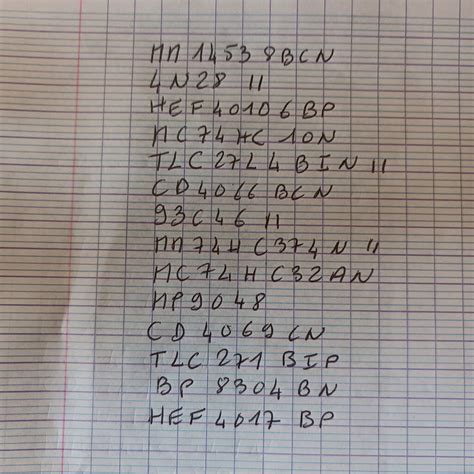 MM 14538BCN
4N28 11
HEF40106BP
MC74HC10N
TLC27L4BIN 11
CD4066BCN
93C46 11
MM74HC374N 11
MC74HC32AN
MP9048
CD4069CN
TLC271BIP
BP 8304BN
HEF4017BP